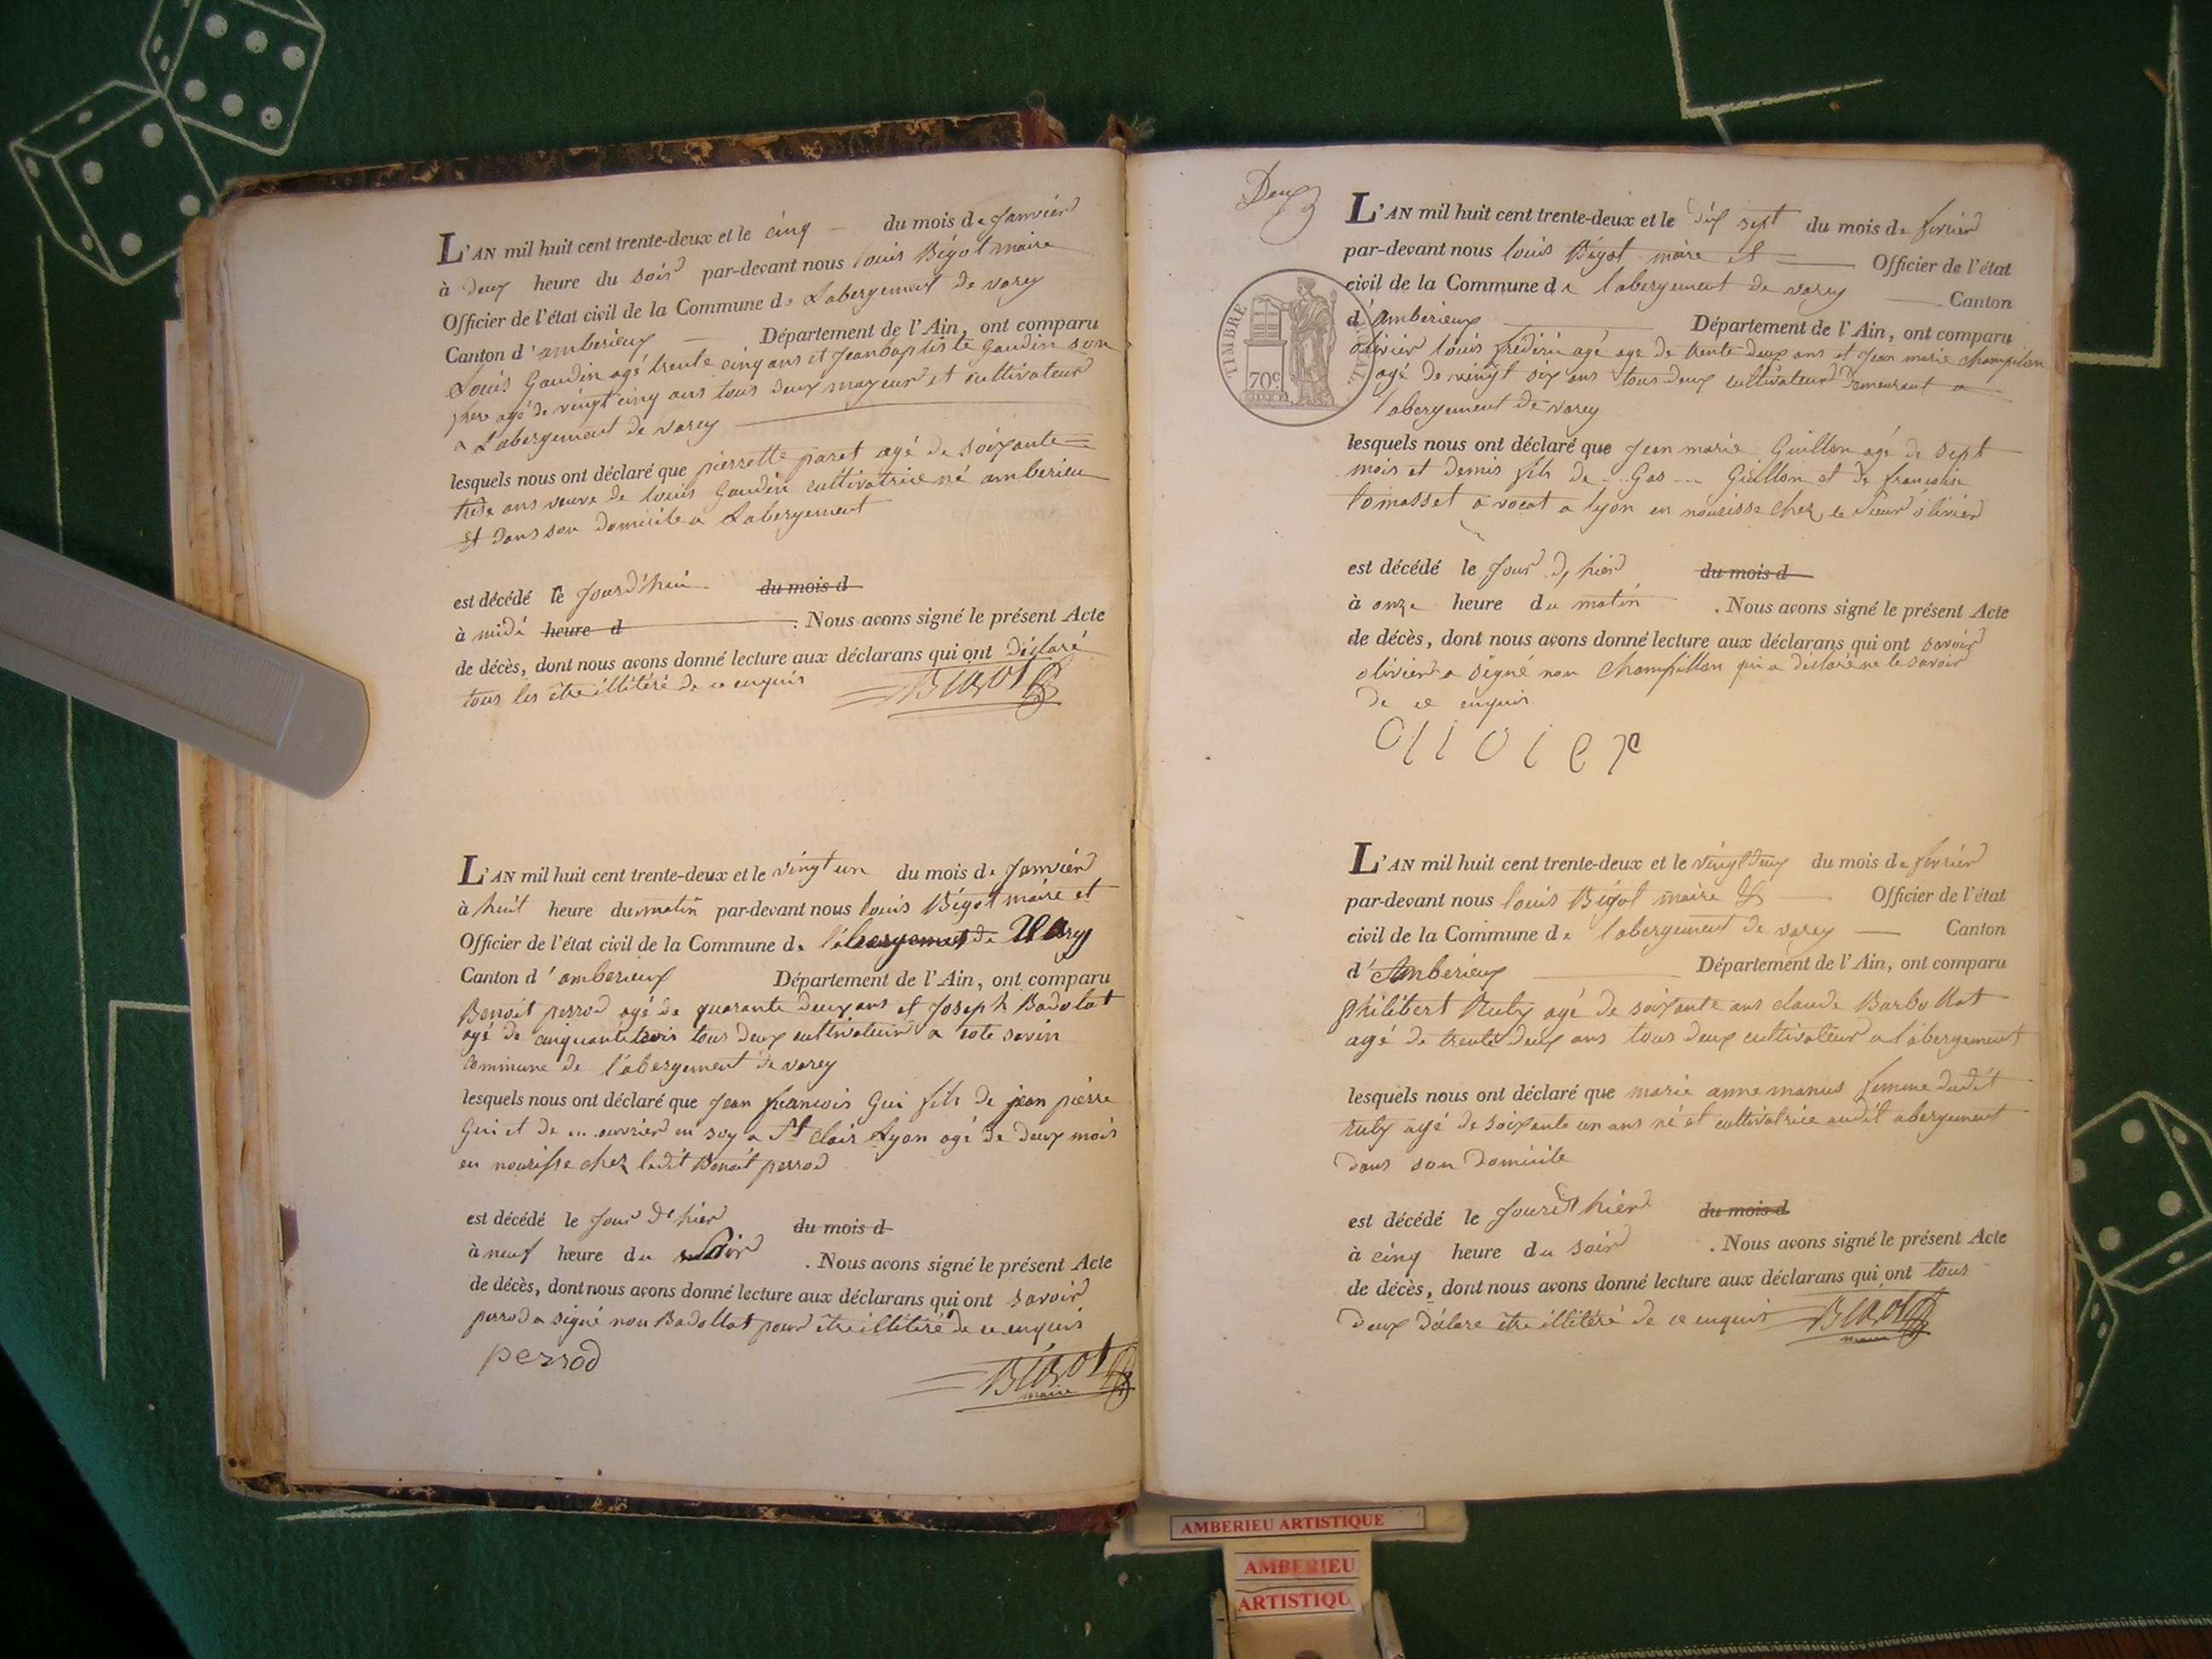 L'AN mil huit cent trente-deux et le cinq du mois de Janvier
à deux heure du soir par-devant nous louis Bigot maire
Officier de l'état civil de la Commune de Labergement de varey
Canton d'amberieux Département de l'Ain, ont comparu
Louis Gaudin agé trente cinq ans et Jean baptiste Gaudin son
frere agé de vingt cinq ans tous deux mayeur et cultivateur
a Labergement de varey
lesquels nous ont déclaré que pierrette paret agé de soixante
treise ans veuve de louis Gaudin cultivatrice né amberieu
et dans son domicile a Labergement
est décédé le Jourd'hui du mois d
à midi heure d . Nous avons signé le présent Acte
de décès, dont nous avons donné lecture aux déclarans qui ont déclaré
tous les être illitéré de ce enquis Bigot
L'AN mil huit cent trente-deux et le vingt un du mois de Janvier
à huit heure du matin par-devant nous louis Bigot maire et
Officier de l'état civil de la Commune de l'abergement de Varey
Canton d'amberieux Département de l'Ain, ont comparu
Benoit perrod agé de quarante deux ans et Joseph Badolat
agé de cinquante trois tous deux cultivateur a cote savin
commune de l'abergement de varey
lesquels nous ont déclaré que Jean francois Gui fils de jean pierre
Gui et de ... ouvrier en soy a St clair Lyon agé de deux mois
en nourisse chez ledit Benoit perrod
est décédé le Jour d'hier du mois d
à neuf heure du soir . Nous avons signé le présent Acte
de décès, dont nous avons donné lecture aux déclarans qui ont savoir
perrod a signé non Badollat pour être illitéré de ce enquis
perrod
Bigot
maire
Deux
TIMBRE ROYAL
70c
L'AN mil huit cent trente-deux et le dix sept du mois de fevrier
par-devant nous louis Bigot maire et Officier de l'état
civil de la Commune de labergement de varey Canton
d'Amberieux Département de l'Ain, ont comparu
olivier louis frédéric agé age de trente deux ans et Jean marie champilon
agé de vingt six ans tous deux cultivateur demeurant a
labergement de varey
lesquels nous ont déclaré que Jean marie Guillon agé de sept
mois et demis fils de ... Gas ... Guillon et de francoise
tomasset avocat a lyon en nourisse chez le sieur olivier
est décédé le Jour d, hier du mois d
à onze heure du matin . Nous avons signé le présent Acte
de décès, dont nous avons donné lecture aux déclarans qui ont savoir
olivier a signé non champillon qui a déclaré ne le savoir
de ce enquis
olivier
L'AN mil huit cent trente-deux et le vingt deux du mois de fevrier
par-devant nous louis Bigot maire & Officier de l'état
civil de la Commune de labergement de varey Canton
d'Amberieux Département de l'Ain, ont comparu
philibert Ruty agé de soixante ans claude Barbollat
agé de trente deux ans tous deux cultivateur a labergement
lesquels nous ont déclaré que marie anne manus femme dudit
ruty agé de soixante un ans né et cultivatrice audit abergement
dans son domicile
est décédé le Jourd'hier du mois d
à cinq heure du soir . Nous avons signé le présent Acte
de décès, dont nous avons donné lecture aux déclarans qui ont tous
deux déclare etre illitéré de ce enquis Bigot
maire
AMBERIEU ARTISTIQUE
AMBERIEU
ARTISTIQU